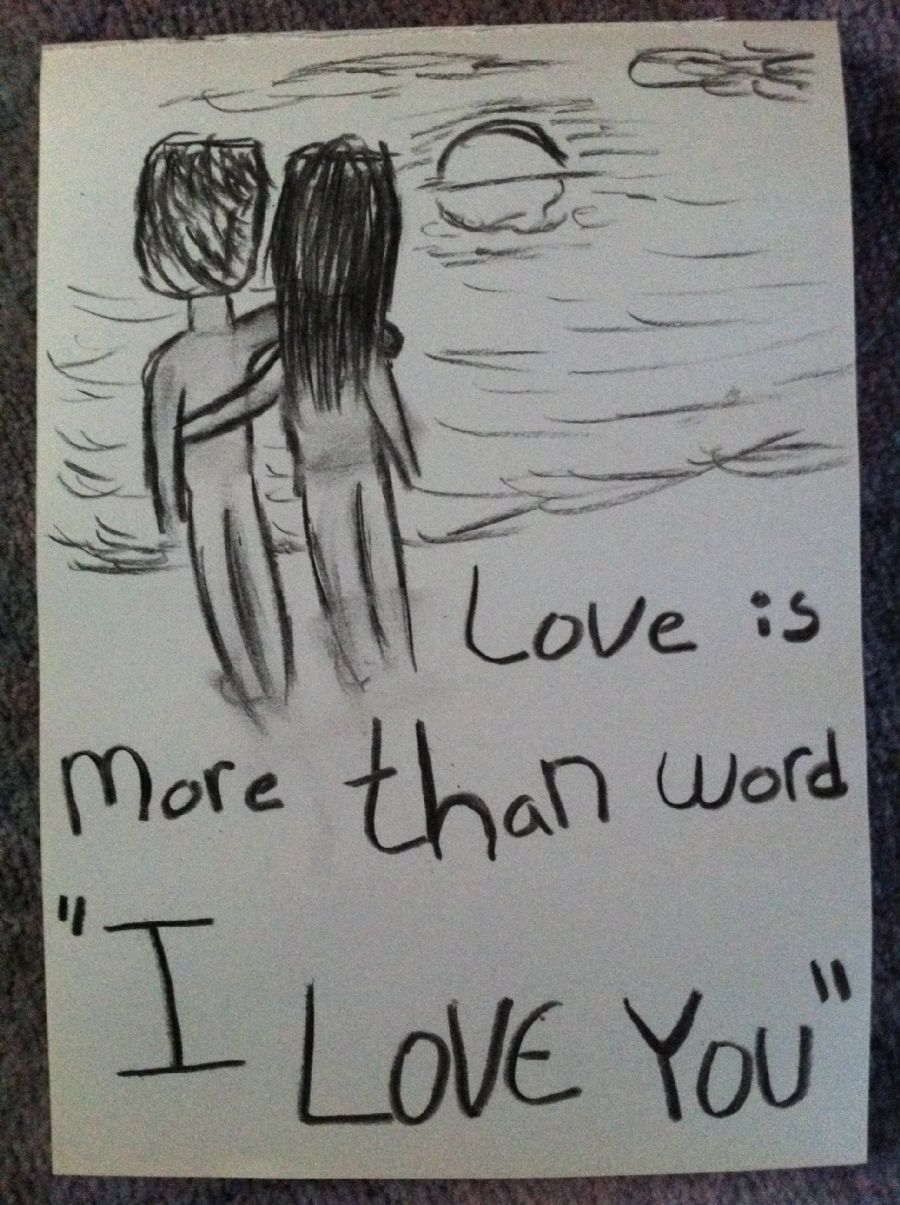 Love is
more than word
"I LOVE YOU"